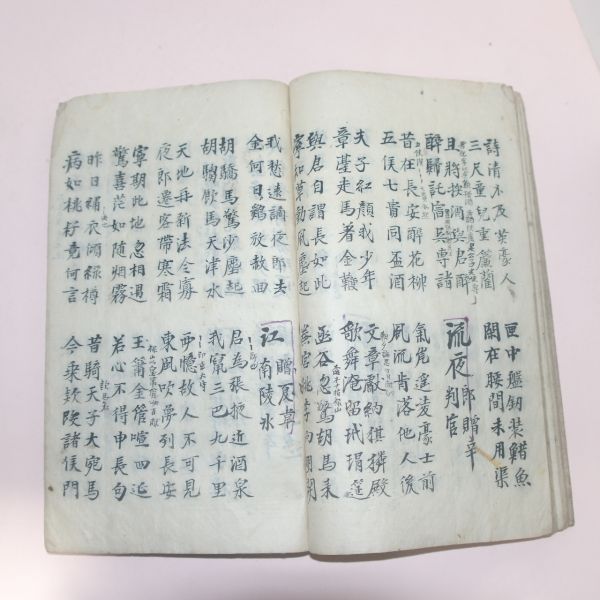 詩清不及英豪人
三尺童兒重廉藺
匣中盤釼裝䱜魚
閒在腰間未用渠
且將換酒與君醉
醉歸託宿吳專諸
流夜郎贈辛判官
昔在長安醉花柳
五侯七貴同盃酒
氣岸遙凌豪士前
風流肯落他人後
夫子紅顏我少年
章臺走馬著金鞭
文章獻納麒麟殿
歌舞淹留玳瑁筵
與君自謂長如此
寧知草動風塵起
函谷忽驚胡馬來
秦宮桃李向明開
我愁遠謫夜郎去
金何日鷄放赦回
江夏贈韋南陵氷
胡驕馬驚沙塵起
胡雛飲馬天津水
君為張掖近酒泉
我竄三巴九千里
天地再新法令寬
夜郎遷客帶寒霜
西憶故人不可見
東風吹夢到長安
寧期此地忽相遇
驚喜茫如随烟霧
玉簫金管喧四筵
苦心不得申長句
昨日繡衣傾綠樽
病如桃李竟何言
昔騎天子大宛馬
今乘款段諸侯門